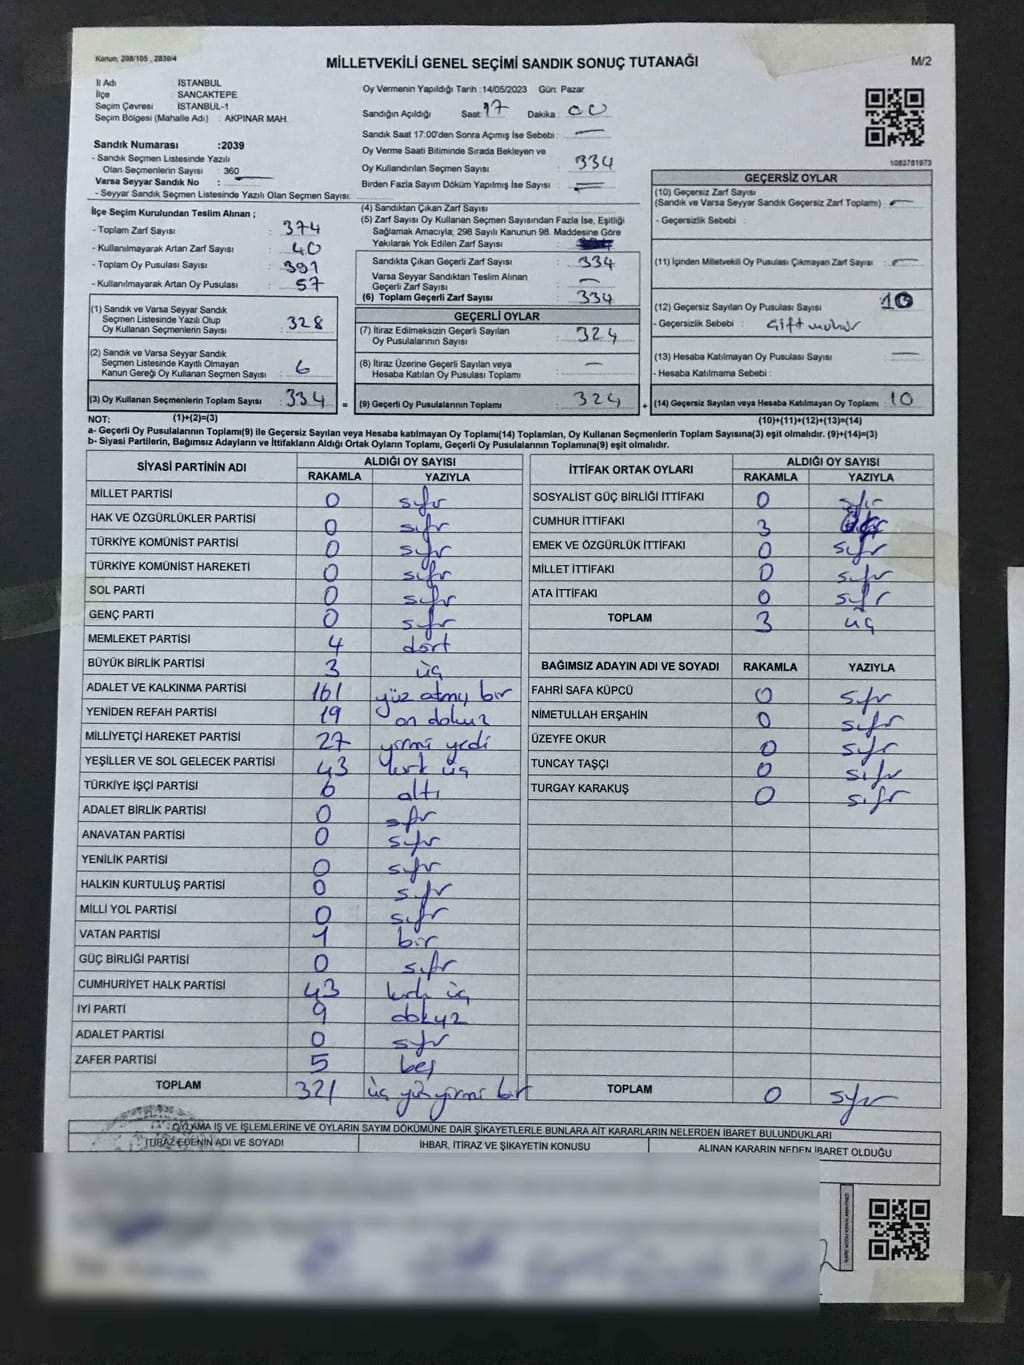 Kanun, 298/105 , 2839/4
MİLLETVEKİLİ GENEL SEÇİMİ SANDIK SONUÇ TUTANAĞI
M/2
İl Adı : İSTANBUL
İlçe : SANCAKTEPE
Seçim Çevresi : İSTANBUL-1
Seçim Bölgesi (Mahalle Adı) : AKPINAR MAH.
Sandık Numarası :2039
- Sandık Seçmen Listesinde Yazılı
Olan Seçmenlerin Sayısı : 360
Varsa Seyyar Sandık No : —
- Seyyar Sandık Seçmen Listesinde Yazılı Olan Seçmen Sayısı:
Oy Vermenin Yapıldığı Tarih :14/05/2023 Gün: Pazar
Sandığın Açıldığı Saat: 17 Dakika : 00
Sandık Saat 17:00'den Sonra Açımış İse Sebebi : —
Oy Verme Saati Bitiminde Sırada Bekleyen ve
Oy Kullandırılan Seçmen Sayısı : 334
Birden Fazla Sayım Döküm Yapılmış İse Sayısı : —
1083781973
İlçe Seçim Kurulundan Teslim Alınan ;
- Toplam Zarf Sayısı : 374
- Kullanılmayarak Artan Zarf Sayısı : 40
- Toplam Oy Pusulası Sayısı : 391
- Kullanılmayarak Artan Oy Pusulası : 57
(1) Sandık ve Varsa Seyyar Sandık
Seçmen Listesinde Yazılı Olup
Oy Kullanan Seçmenlerin Sayısı : 328
(2) Sandık ve Varsa Seyyar Sandık
Seçmen Listesinde Kayıtlı Olmayan
Kanun Gereği Oy Kullanan Seçmen Sayısı : 6
(3) Oy Kullanan Seçmenlerin Toplam Sayısı : 334
(4) Sandıktan Çıkan Zarf Sayısı :
(5) Zarf Sayısı Oy Kullanan Seçmen Sayısından Fazla İse, Eşitliği
Sağlamak Amacıyla; 298 Sayılı Kanunun 98. Maddesine Göre
Yakılarak Yok Edilen Zarf Sayısı :
Sandıkta Çıkan Geçerli Zarf Sayısı : 334
Varsa Seyyar Sandıktan Teslim Alınan
Geçerli Zarf Sayısı : —
(6) Toplam Geçerli Zarf Sayısı : 334
GEÇERLİ OYLAR
(7) İtiraz Edilmeksizin Geçerli Sayılan
Oy Pusulalarının Sayısı : 324
(8) İtiraz Üzerine Geçerli Sayılan veya
Hesaba Katılan Oy Pusulası Toplamı : —
= (9) Geçerli Oy Pusulalarının Toplamı : 324
GEÇERSİZ OYLAR
(10) Geçersiz Zarf Sayısı
(Sandık ve Varsa Seyyar Sandık Geçersiz Zarf Toplamı) : —
- Geçersizlik Sebebi :
(11) İçinden Milletvekili Oy Pusulası Çıkmayan Zarf Sayısı : —
(12) Geçersiz Sayılan Oy Pusulası Sayısı : 10
- Geçersizlik Sebebi : Çift mühür
(13) Hesaba Katılmayan Oy Pusulası Sayısı : —
- Hesaba Katılmama Sebebi :
+ (14) Geçersiz Sayılan veya Hesaba Katılmayan Oy Toplamı : 10
NOT: (1)+(2)=(3)
(10)+(11)+(12)+(13)=(14)
a- Geçerli Oy Pusulalarının Toplamı(9) ile Geçersiz Sayılan veya Hesaba katılmayan Oy Toplamı(14) Toplamları, Oy Kullanan Seçmenlerin Toplam Sayısına(3) eşit olmalıdır. (9)+(14)=(3)
b- Siyasi Partilerin, Bağımsız Adayların ve İttifakların Aldığı Ortak Oyların Toplamı, Geçerli Oy Pusulalarının Toplamına(9) eşit olmalıdır.
SİYASİ PARTİNİN ADI ALDIĞI OY SAYISI
RAKAMLA YAZIYLA
MİLLET PARTİSİ 0 sıfır
HAK VE ÖZGÜRLÜKLER PARTİSİ 0 sıfır
TÜRKİYE KOMÜNİST PARTİSİ 0 sıfır
TÜRKİYE KOMÜNİST HAREKETİ 0 sıfır
SOL PARTİ 0 sıfır
GENÇ PARTİ 0 sıfır
MEMLEKET PARTİSİ 4 dört
BÜYÜK BİRLİK PARTİSİ 3 üç
ADALET VE KALKINMA PARTİSİ 161 yüz atmış bir
YENİDEN REFAH PARTİSİ 19 on dokuz
MİLLİYETÇİ HAREKET PARTİSİ 27 yirmi yedi
YEŞİLLER VE SOL GELECEK PARTİSİ 43 kırk üç
TÜRKİYE İŞÇİ PARTİSİ 6 altı
ADALET BİRLİK PARTİSİ 0 sıfır
ANAVATAN PARTİSİ 0 sıfır
YENİLİK PARTİSİ 0 sıfır
HALKIN KURTULUŞ PARTİSİ 0 sıfır
MİLLİ YOL PARTİSİ 0 sıfır
VATAN PARTİSİ 1 bir
GÜÇ BİRLİĞİ PARTİSİ 0 sıfır
CUMHURİYET HALK PARTİSİ 43 kırk üç
İYİ PARTİ 9 dokuz
ADALET PARTİSİ 0 sıfır
ZAFER PARTİSİ 5 beş
TOPLAM 321 üç yüz yirmi bir
İTTİFAK ORTAK OYLARI ALDIĞI OY SAYISI
RAKAMLA YAZIYLA
SOSYALİST GÜÇ BİRLİĞİ İTTİFAKI 0 sıfır
CUMHUR İTTİFAKI 3
EMEK VE ÖZGÜRLÜK İTTİFAKI 0 sıfır
MİLLET İTTİFAKI 0 sıfır
ATA İTTİFAKI 0 sıfır
TOPLAM 3 üç
BAĞIMSIZ ADAYIN ADI VE SOYADI RAKAMLA YAZIYLA
FAHRİ SAFA KÜPCÜ 0 sıfır
NİMETULLAH ERŞAHİN 0 sıfır
ÜZEYFE OKUR 0 sıfır
TUNCAY TAŞÇI 0 sıfır
TURGAY KARAKUŞ 0 sıfır
TOPLAM 0 sıfır
OYLAMA İŞ VE İŞLEMLERİNE VE OYLARIN SAYIM DÖKÜMÜNE DAİR ŞİKAYETLERLE BUNLARA AİT KARARLARIN NELERDEN İBARET BULUNDUKLARI
İTİRAZ EDENİN ADI VE SOYADI İHBAR, İTİRAZ VE ŞİKAYETİN KONUSU ALINAN KARARIN NEDEN İBARET OLDUĞU